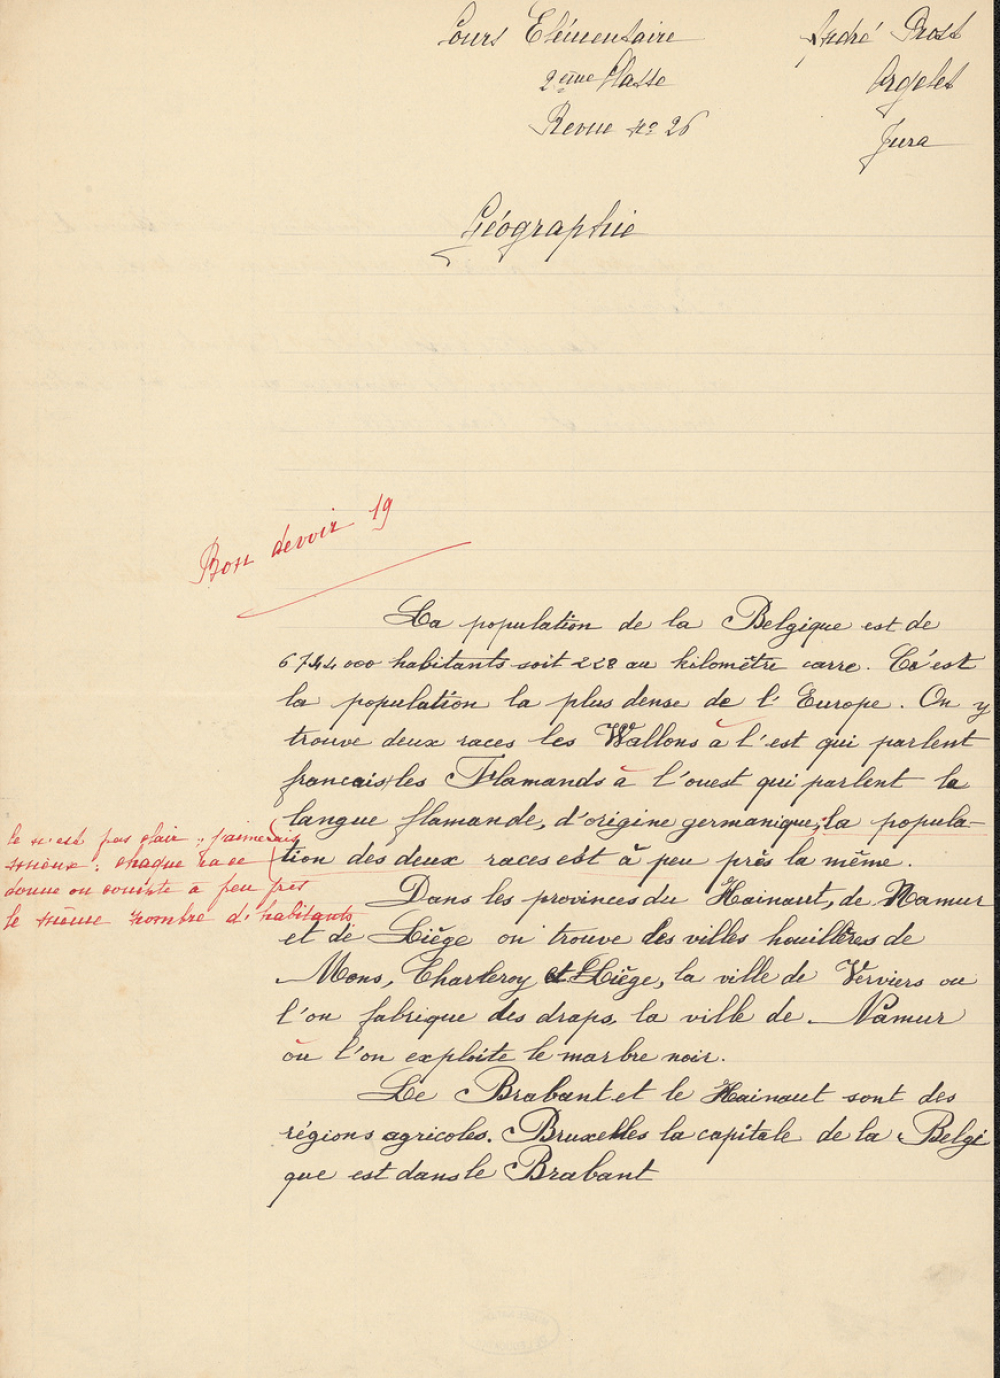 Cours Elémentaire
2ème Classe
Revue No 26
André Prost
Orgelet
Jura
Géographie
Bon devoir 19
La population de la Belgique est de
6744000 habitants soit 228 au kilomètre carre. C'est
la population la plus dense de l'Europe. On y
trouve deux races les Wallons à l'est qui parlent
francais, les Flamands à l'ouest qui parlent la
langue flamande, d'origine germanique; la popula-
tion des deux races est à peu près la même.
Ce n'est pas clair; j'aimerais
mieux: chaque race
donne on compte à peu près
le même nombre d'habitants
Dans les provinces du Hainaut, de Namur
et de Liège on trouve des villes houillères de
Mons, Charleroy et Liège, la ville de Verviers ou
l'on fabrique des draps, la ville de Namur
où l'on exploite le marbre noir.
Le Brabant et le Hainaut sont des
régions agricoles. Bruxelles la capitale de la Belgi
que est dans le Brabant